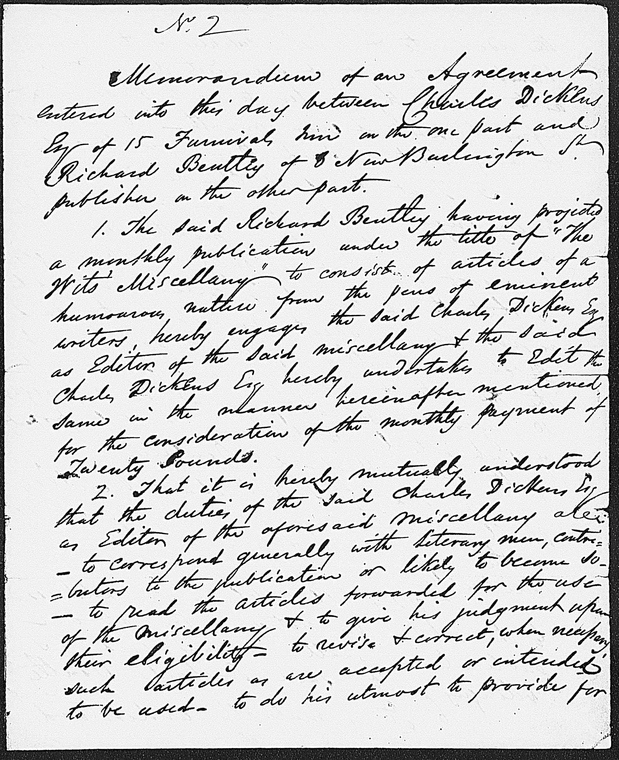 No. 2
Memorandum of an Agreement
entered into this day between Charles Dickens
Esq of 15 Furnivals Inn on the one part and
Richard Bentley of 8 New Burlington St.
publisher on the other part.
1. The said Richard Bentley having projected
a monthly publication under the title of "The
Wits' Miscellany" to consist of articles of a
humourous nature from the pens of eminent
writers, hereby engages the said Charles Dickens Esq
as Editor of the said miscellany & the said
Charles Dickens Esq hereby undertakes to Edit the
same in the manner hereinafter mentioned
for the consideration of the monthly payment of
Twenty Pounds.
2. That it is hereby mutually understood
that the duties of the said Charles Dickens Esq
as Editor of the aforesaid miscellany are:
– to correspond generally with literary men, contri=
=butors to the publication or likely to become so –
– to read the articles forwarded for the use
of the miscellany & to give his judgment upon
their eligibility – to revise & correct, when necessary
such articles as are accepted or intended
to be used – to do his utmost to provide for